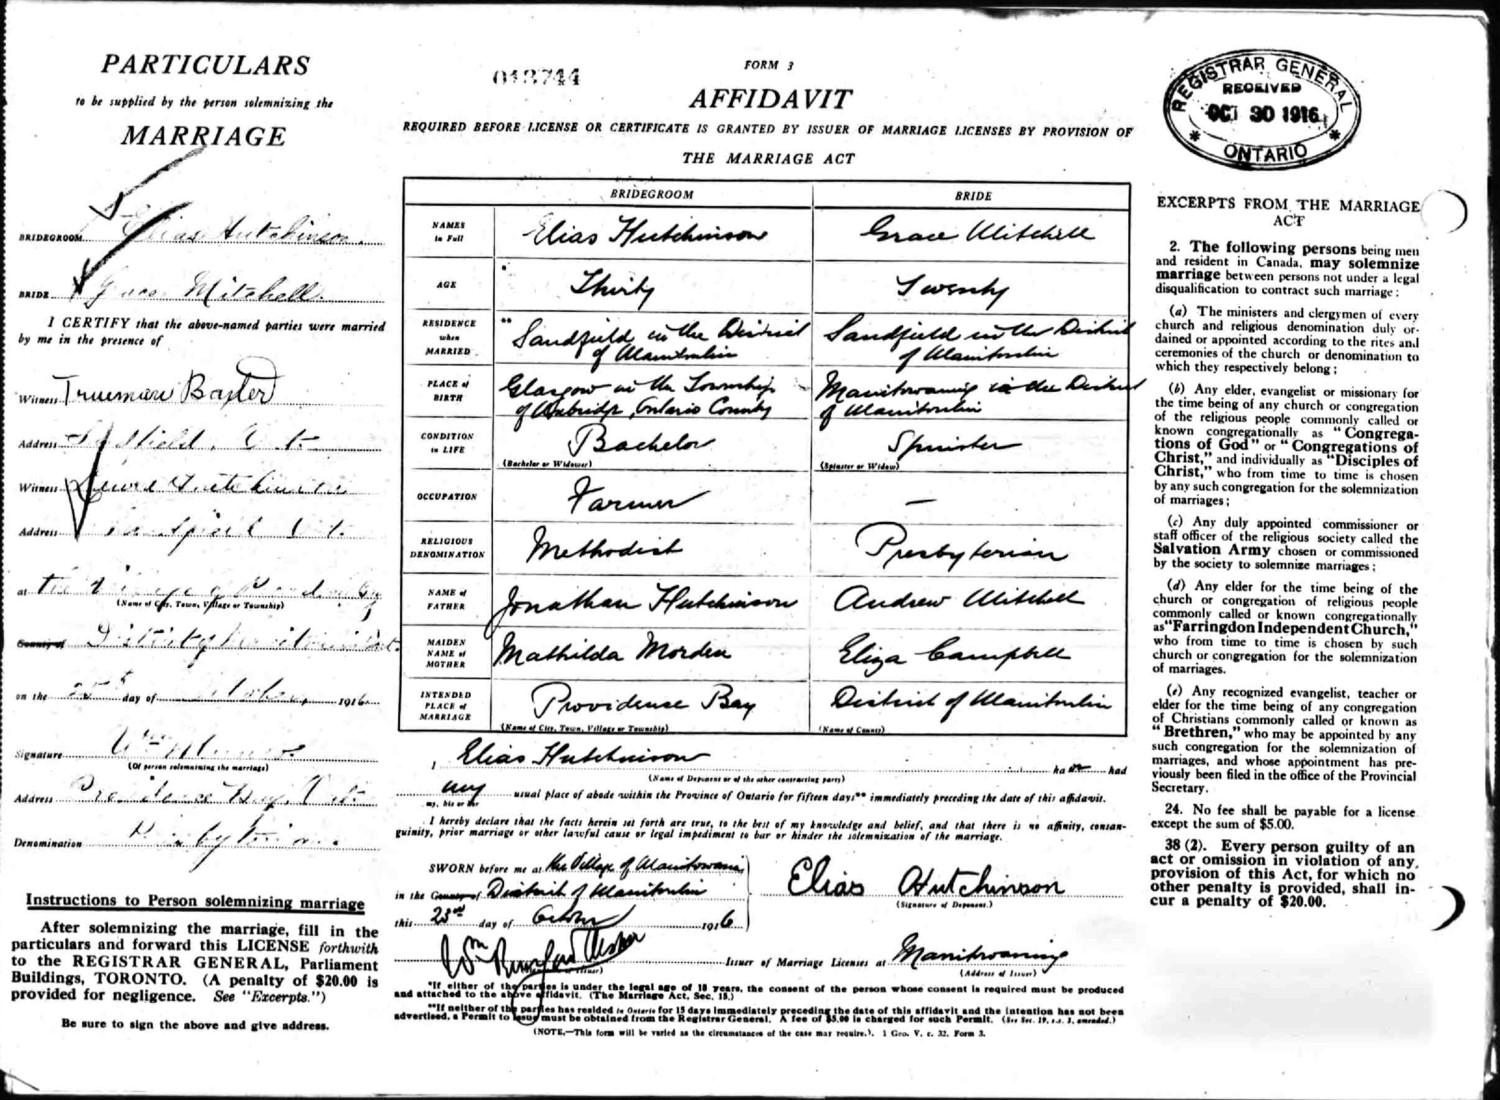 PARTICULARS
to be supplied by the person solemnizing the
MARRIAGE
BRIDEGROOM Elias Hutchinson.
BRIDE Grace Mitchell.
I CERTIFY that the above-named parties were married
by me in the presence of
Witness Trueman Baxter
Address
Witness Hutchinson
Address
at the Village of Providence Bay
(Name of City, Town, Village or Township)
County of District of Manitoulin Ont.
on the 25th day of October 1916
Signature Wm
(Of person solemnizing the marriage)
Address Providence Bay, Ont.
Denomination Presbyterian
Instructions to Person solemnizing marriage
After solemnizing the marriage, fill in the
particulars and forward this LICENSE forthwith
to the REGISTRAR GENERAL, Parliament
Buildings, TORONTO. (A penalty of $20.00 is
provided for negligence. See "Excerpts.")
Be sure to sign the above and give address.
013744
FORM 3
AFFIDAVIT
REQUIRED BEFORE LICENSE OR CERTIFICATE IS GRANTED BY ISSUER OF MARRIAGE LICENSES BY PROVISION OF
THE MARRIAGE ACT
BRIDEGROOM BRIDE
NAMES in Full Elias Hutchinson Grace Mitchell
AGE * Thirty Twenty
RESIDENCE when MARRIED ** Sandfield in the District of Manitoulin Sandfield in the District of Manitoulin
PLACE of BIRTH Glasgow in the Township of Uxbridge, Ontario County Manitowaning in the District of Manitoulin
CONDITION in LIFE Bachelor Spinster
(Bachelor or Widower) (Spinster or Widow)
OCCUPATION Farmer —
RELIGIOUS DENOMINATION Methodist Presbyterian
NAME of FATHER Jonathan Hutchinson Andrew Mitchell
MAIDEN NAME of MOTHER Mathilda Morden Eliza Campbell
INTENDED PLACE of MARRIAGE Providence Bay District of Manitoulin
(Name of City, Town, Village or Township) (Name of County)
I, Elias Hutchinson ha ve had
(Name of Deponent or of the other contracting party)
my usual place of abode within the Province of Ontario for fifteen days** immediately preceding the date of this affidavit.
my, his or her
I hereby declare that the facts herein set forth are true, to the best of my knowledge and belief, and that there is no affinity, consan-
guinity, prior marriage or other lawful cause or legal impediment to bar or hinder the solemnization of the marriage.
SWORN before me at the Village of Manitowaning
in the County of District of Manitoulin
this 23rd day of October 1916
Elias Hutchinson
(Signature of Deponent.)
Wm
Issuer of Marriage Licenses at Manitowaning
(Address of Issuer)
*If either of the parties is under the legal age of 18 years, the consent of the person whose consent is required must be produced
and attached to the above affidavit. (The Marriage Act, Sec. 15.)
**If neither of the parties has resided in Ontario for 15 days immediately preceding the date of this affidavit and the intention has not been
advertised, a Permit to issue must be obtained from the Registrar General. A fee of $5.00 is charged for such Permit. (See Sec. 19, s.s. 3, amended.)
(NOTE.—This form will be varied as the circumstances of the case may require.). 1 Geo. V. c. 32. Form 3.
REGISTRAR GENERAL
RECEIVED
OCT 30 1916
* ONTARIO *
EXCERPTS FROM THE MARRIAGE
ACT
2. The following persons being men
and resident in Canada, may solemnize
marriage between persons not under a legal
disqualification to contract such marriage:
(a) The ministers and clergymen of every
church and religious denomination duly or-
dained or appointed according to the rites and
ceremonies of the church or denomination to
which they respectively belong;
(b) Any elder, evangelist or missionary for
the time being of any church or congregation
of the religious people commonly called or
known congregationally as "Congrega-
tions of God" or "Congregations of
Christ," and individually as "Disciples of
Christ," who from time to time is chosen
by any such congregation for the solemnization
of marriages;
(c) Any duly appointed commissioner or
staff officer of the religious society called the
Salvation Army chosen or commissioned
by the society to solemnize marriages;
(d) Any elder for the time being of the
church or congregation of religious people
commonly called or known congregationally
as "Farringdon Independent Church,"
who from time to time is chosen by such
church or congregation for the solemnization
of marriages.
(e) Any recognized evangelist, teacher or
elder for the time being of any congregation
of Christians commonly called or known as
"Brethren," who may be appointed by any
such congregation for the solemnization of
marriages, and whose appointment has pre-
viously been filed in the office of the Provincial
Secretary.
24. No fee shall be payable for a license
except the sum of $5.00.
38 (2). Every person guilty of an
act or omission in violation of any
provision of this Act, for which no
other penalty is provided, shall in-
cur a penalty of $20.00.